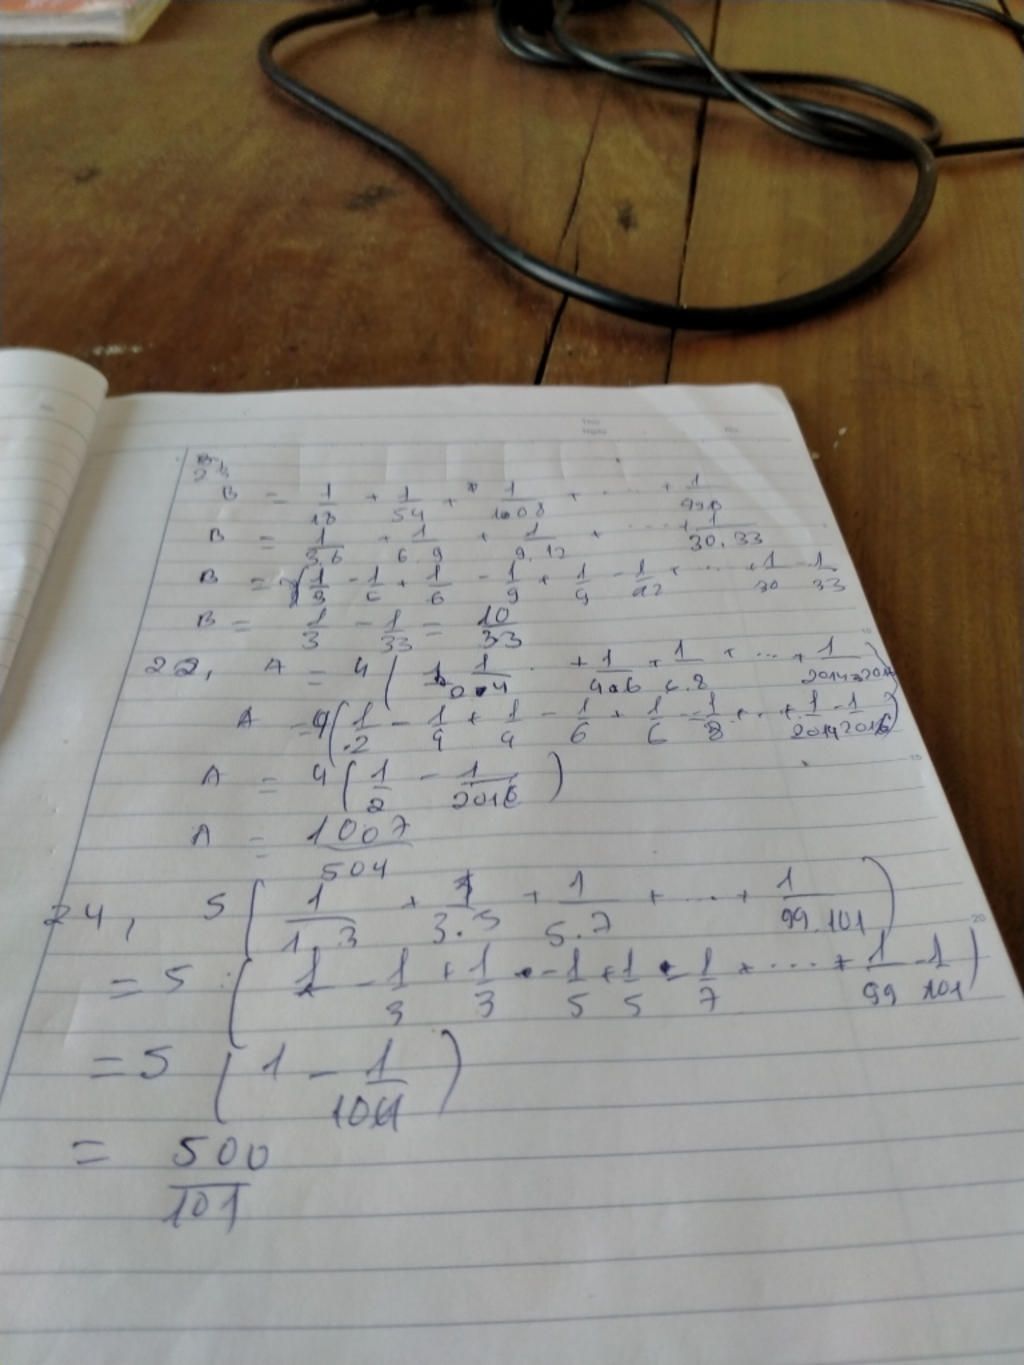 B = 1/18 + 1/54 + 1/108 + .... + 1/990
B = 1/3.6 + 1/6.9 + 1/9.12 + .... + 1/30.33
B = 1/3 - 1/6 + 1/6 - 1/9 + 1/9 - 1/12 + ... + 1/30 - 1/33
B = 1/3 - 1/33 = 10/33
22, A = 4 ( 1/2.4 + 1/4.6 + 1/6.8 + ... + 1/2014.2016 )
A = 4 ( 1/2 - 1/4 + 1/4 - 1/6 + 1/6 - 1/8 + ... + 1/2014 - 1/2016 )
A = 4 ( 1/2 - 1/2016 )
A = 1007/504
24, 5 ( 1/1.3 + 1/3.5 + 1/5.7 + ... + 1/99.101 )
= 5 ( 1 - 1/3 + 1/3 - 1/5 + 1/5 - 1/7 + .... + 1/99 - 1/101 )
= 5 ( 1 - 1/101 )
= 500/101